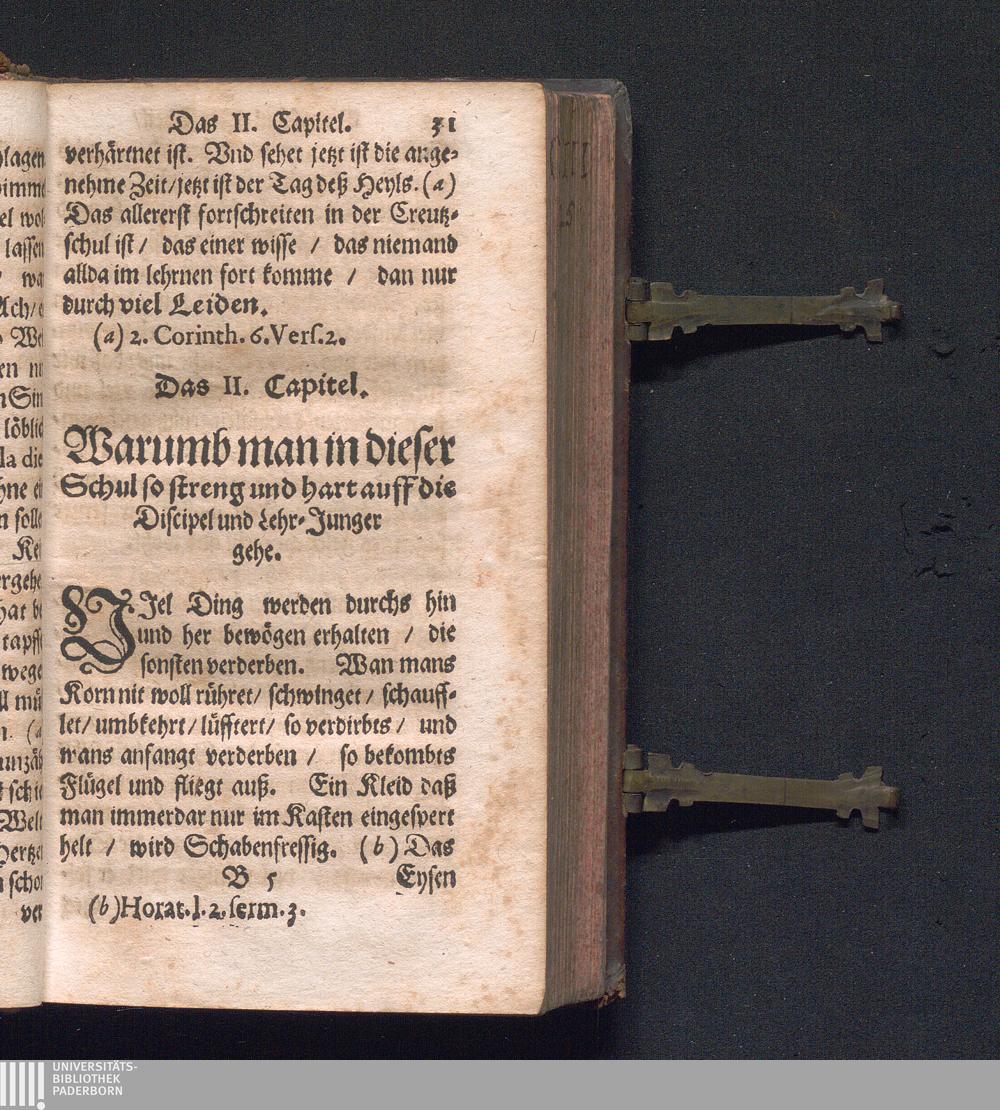 Das II. Capitel. 31
verhärtnet ist. Vnd sehet jetzt ist die ange-
nehme Zeit/jetzt ist der Tag deß Heyls. (a)
Das allererst fortschreiten in der Creutz-
schul ist / das einer wisse / das niemand
allda im lehrnen fort komme / dan nur
durch viel Leiden.
(a) 2. Corinth. 6. Vers. 2.
Das II. Capitel.
Warumb man in dieser
Schul so streng und hart auff die
Discipel und Lehr-Junger
gehe.
VJel Ding werden durchs hin
und her bewögen erhalten / die
sonsten verderben. Wan mans
Korn nit woll rühret/ schwinget/ schauff-
let/ umbkehrt/ lüfftert/ so verdirbts/ und
wans anfangt verderben / so bekombts
Flügel und fliegt auß. Ein Kleid daß
man immerdar nur im Kasten eingespert
helt / wird Schabenfressig. (b) Das
B 5 Eysen
(b) Horat. l. 2. serm. 3.
UNIVERSITÄTS-
BIBLIOTHEK
PADERBORN